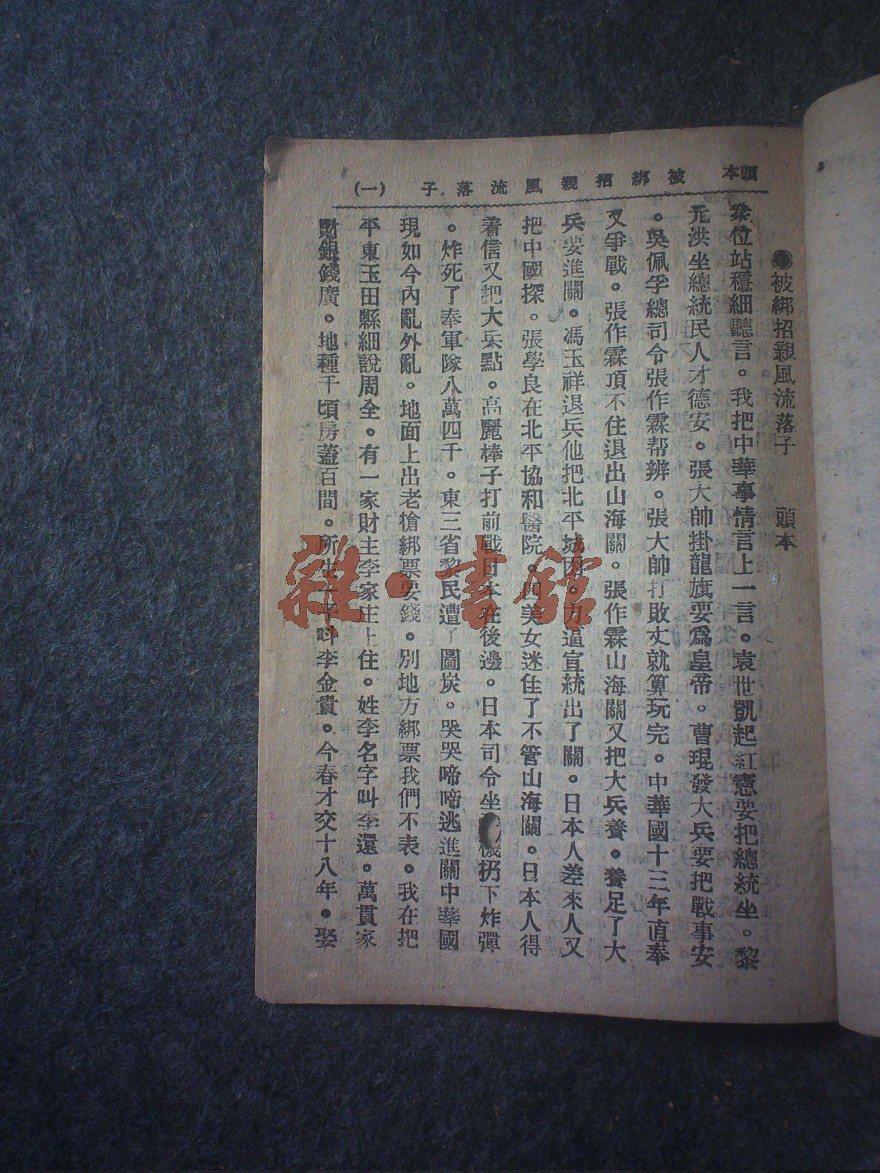 頭本　被綁招親風流落子　（一）
被綁招親風流落子　頭本
衆位站穩細聽言。我把中華事情言上一言。袁世凱起紅憲要把總統坐。黎
元洪坐總統民人才德安。張大帥掛龍旗要爲皇帝。曹琨發大兵要把戰事安
。吳佩孚總司令張作霖帮辨。張大帥打敗丈就算玩完。中華國十三年直奉
又爭戰。張作霖頂不住退出山海關。張作霖山海關又把大兵養。養足了大
兵要進關。馮玉祥退兵他把北平城困。力逼宣統出了關。日本人差來人又
把中國探。張學良在北平協和醫院。美女迷住了不管山海關。日本人得
着信又把大兵點。高麗棒子打前戰日本在後邊。日本司令坐機扔下炸彈
。炸死了奉軍隊八萬四千。東三省黎民遭了圖炭。哭哭啼啼逃進關中華國
現如今內亂外亂。地面上出老搶綁票要錢。別地方綁票我們不表。我在把
平東玉田縣細說周全。有一家財主李家庄上住。姓李名字叫李還。萬貫家
財銀錢廣。地種千頃房蓋百間。所生一子叫李金貴。今春才交十八年。娶
雜·書館